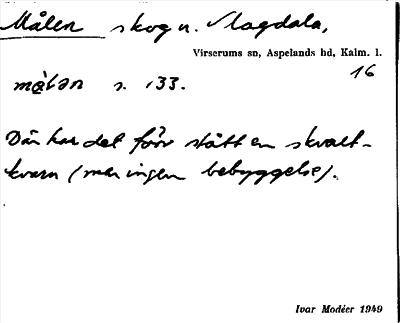 Målen skog u. Magdala,
Virserums sn, Aspelands hd, Kalm. l.
16
må̀lən s. 133.
Där har det förr stått en skvalt-
kvarn (men ingen bebyggelse).
Ivar Modéer 1949